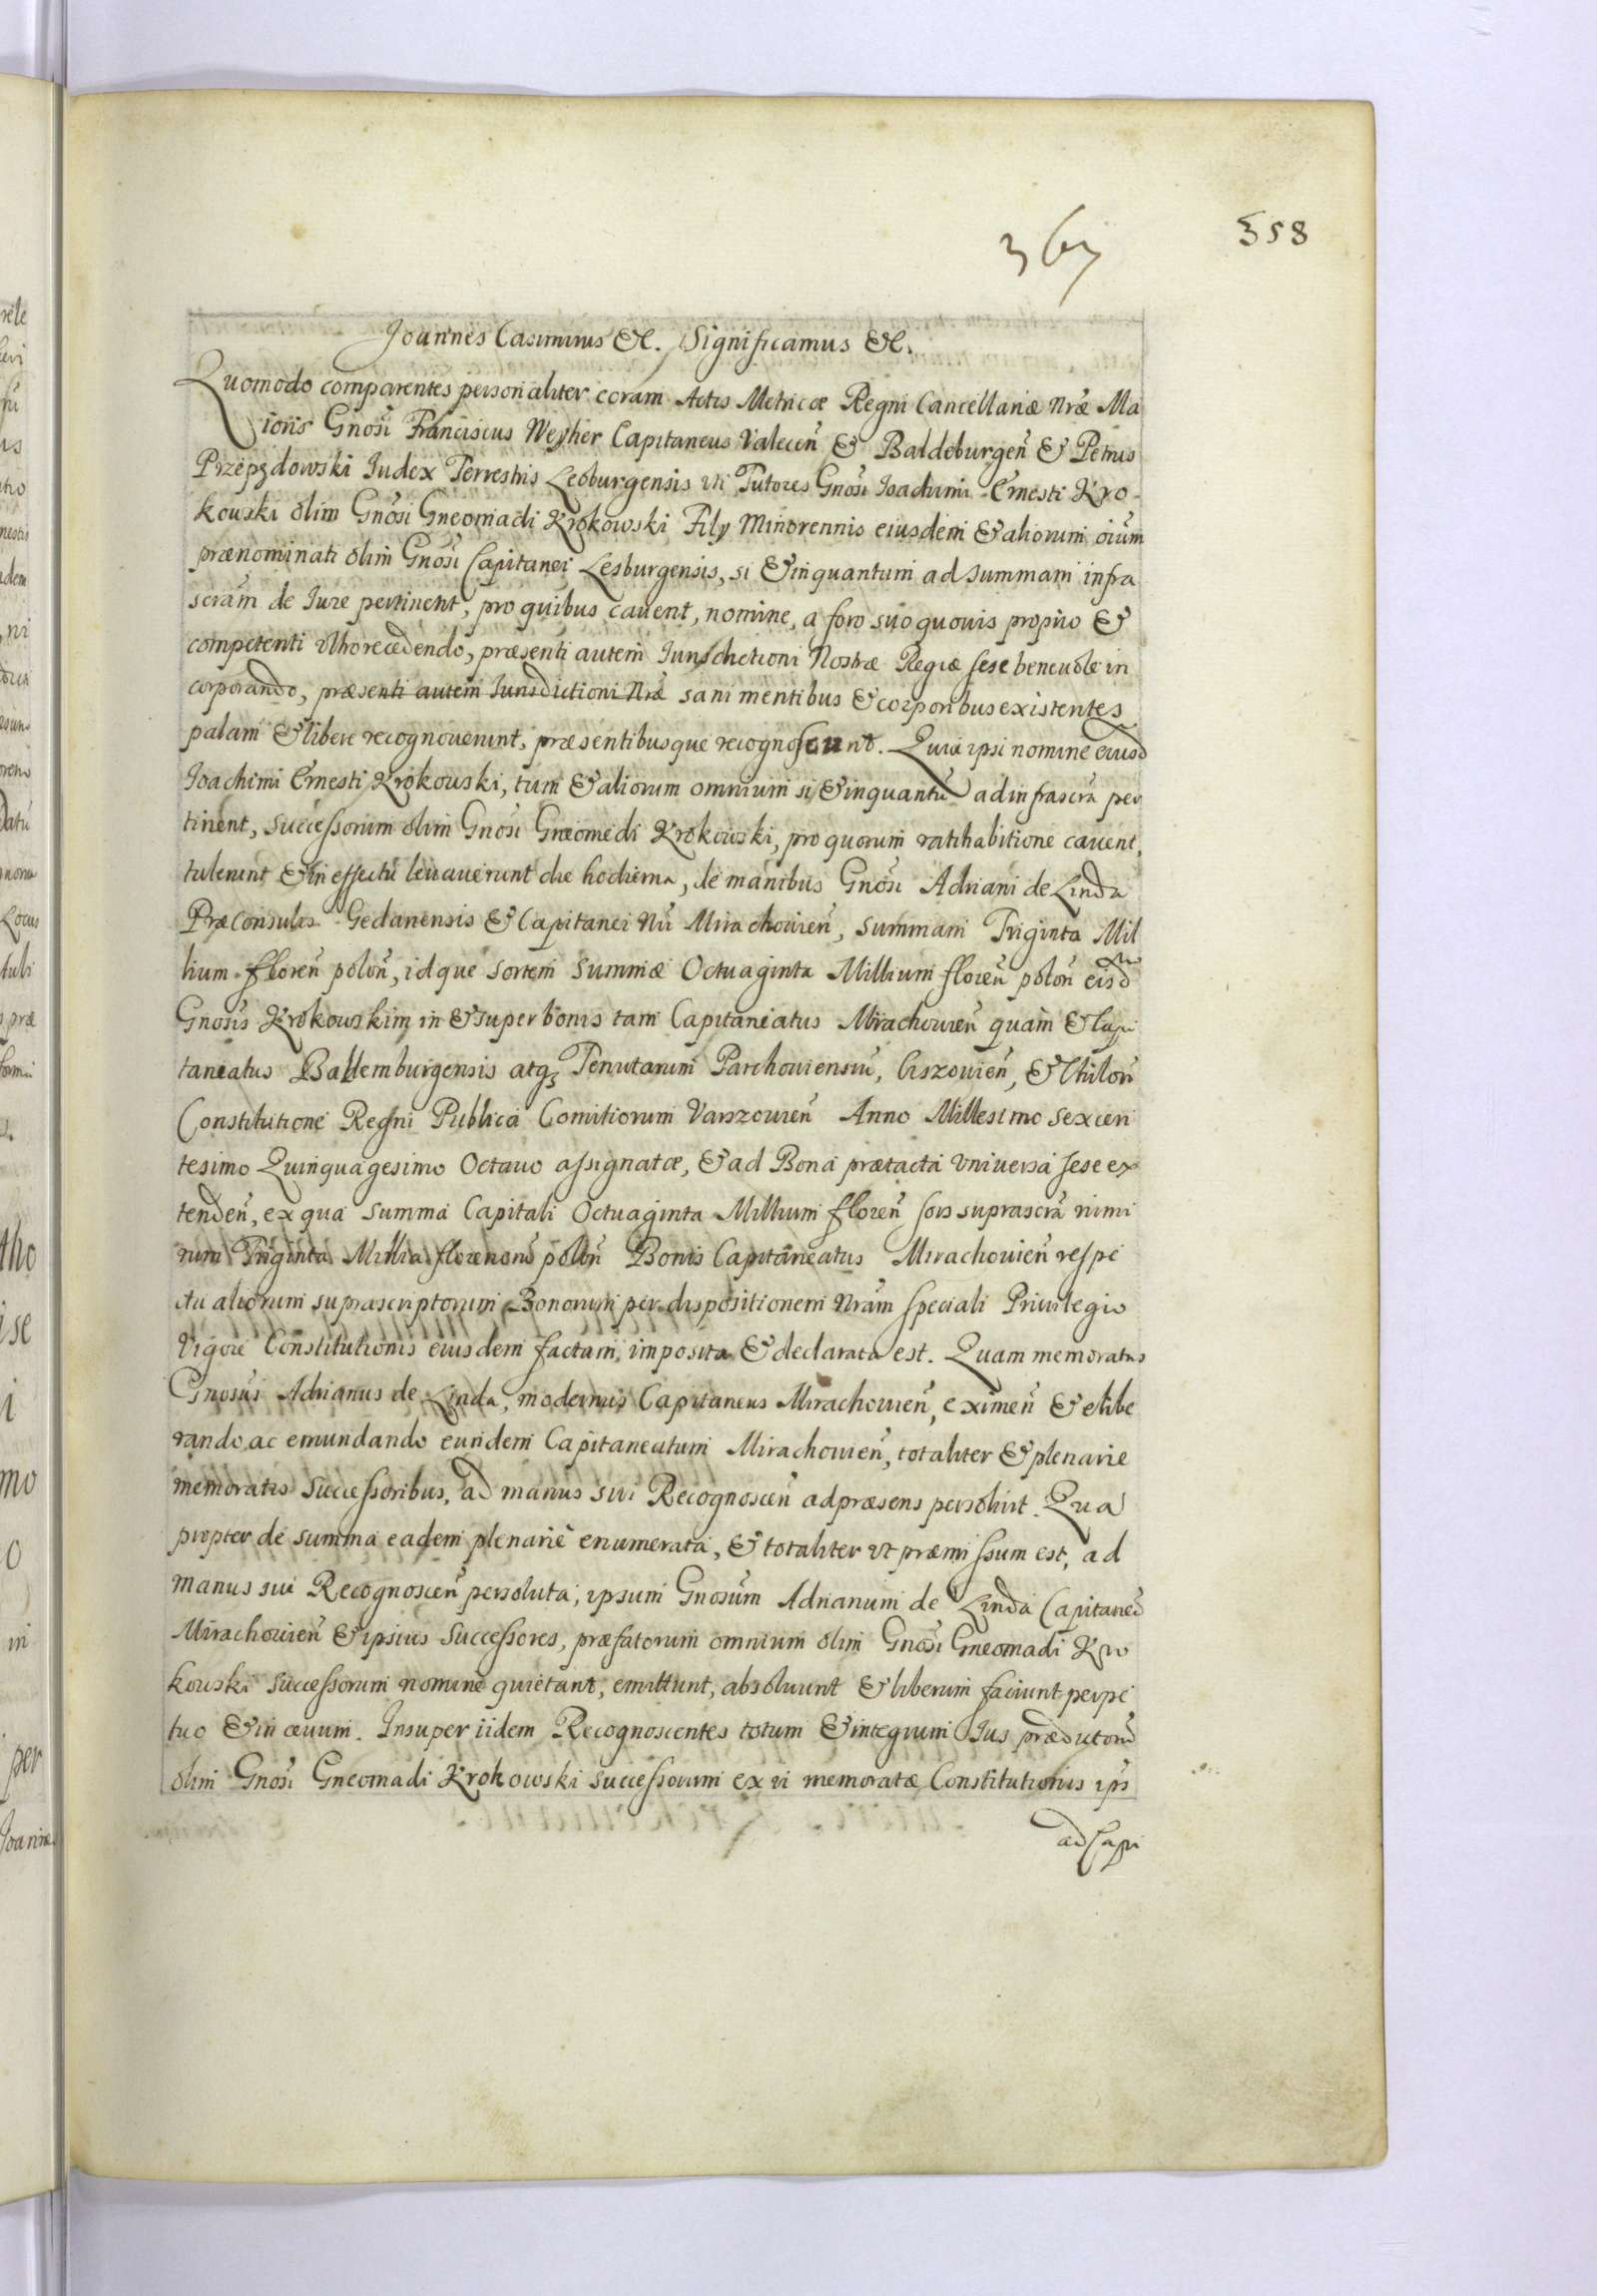 367
358
Joannes Casimirus &c. Significamus &c.
Quomodo comparentes personaliter coram Actis Metricæ Regni Cancellariæ Nr̃æ Ma
ioris Gnosi Franciscus Weyher Capitaneus Valecen̄ & Baldeburgen̄ & Petrus
Przepędowski Iudex Terrestris Leoburgensis uti Tutores Gnosi Ioachimi Ernesti Kro-
kowski olim Gnosi Gneomadi Krokowski Filij Minorennis eiusdem & aliorum oiūm
prænominati olim Gnosi Capitanei Lesburgensis, si & inquantum ad summam infra
scrām de Iure pertinent, pro quibus cavent, nomine, a foro suo quovis proprio &
competenti recedendo, præsenti autem Iurisdictioni Nostræ Regiæ sese benevole in
corporando, præsenti autem Iurisdictioni Nræ sani mentibus & corporibus existentes
palam & libere recognoverunt, præsentibusque recognoscunt. Quia ipsi nomine eiusd
Ioachimi Ernesti Krokowski, tum & aliorum omnium si & inquantū ad infrascrā per
tinent, successorum olim Gnosi Gneomedi Krokowski, pro quorum ratihabitione cavent,
tulerunt & in effectū levaverunt die hodierna, de manibus Gnosi Adriani de Linda
Præconsulis Gedanensis & Capitanei Nri Mirachovien̄, summam Triginta Mil
lium floren̄ polon̄, idque sortem summæ Octuaginta Millium floren̄ polon̄ eisd
Gnosis Krokowskim in & super bonis tam Capitaneatus Mirachovien̄ quam & Capi
taneatus Baldemburgensis atq₃ Tenutarum Parchoviensiū, Liszovien̄, & Chilon̄
Constitutione Regni Publica Comitiorum Varszovien̄ Anno Millesimo sexcen
tesimo Quinquagesimo Octavo assignatæ, & ad Bona prætacta universa sese ex
tenden̄, ex qua summa Capitali Octuaginta Millium floren̄ sors suprascrā nimi
rum Triginta Millia florenorū polon̄ Bonis Capitaneatus Mirachovien̄ respe
ctu aliorum suprascriptorum Bonorum per dispositionem Nrām speciali Privilegio
Vigore Constitutionis eiusdem factam, imposita & declarata est. Quam memoratus
Gnosūs Adrianus de Linda, modernus Capitaneus Mirachovien̄, eximen̄ & elibe
rando, ac emundando eundem Capitaneatum Mirachovien̄, totaliter & plenarie
memoratis successoribus, ad manus sui Recognoscen̄ ad præsens persolvit. Qua
propter de summa eadem plenariè enumerata, & totaliter ut præmissum est, ad
manus sui Recognoscen̄ persoluta, ipsum Gnosūm Adrianum de Linda Capitaneū
Mirachovien̄ & ipsius Successores, præfatorum omnium olim Gnosi Gneomadi Kro
kowski successorum nomine quietant, emittunt, absolvunt & liberum faciunt perpe
tuo & in ævum. Insuper iidem Recognoscentes totum & integrum Ius prædictorū
olim Gnosi Gneomadi Krokowski successorum ex vi memoratæ Constitutionis ips
ad Capi